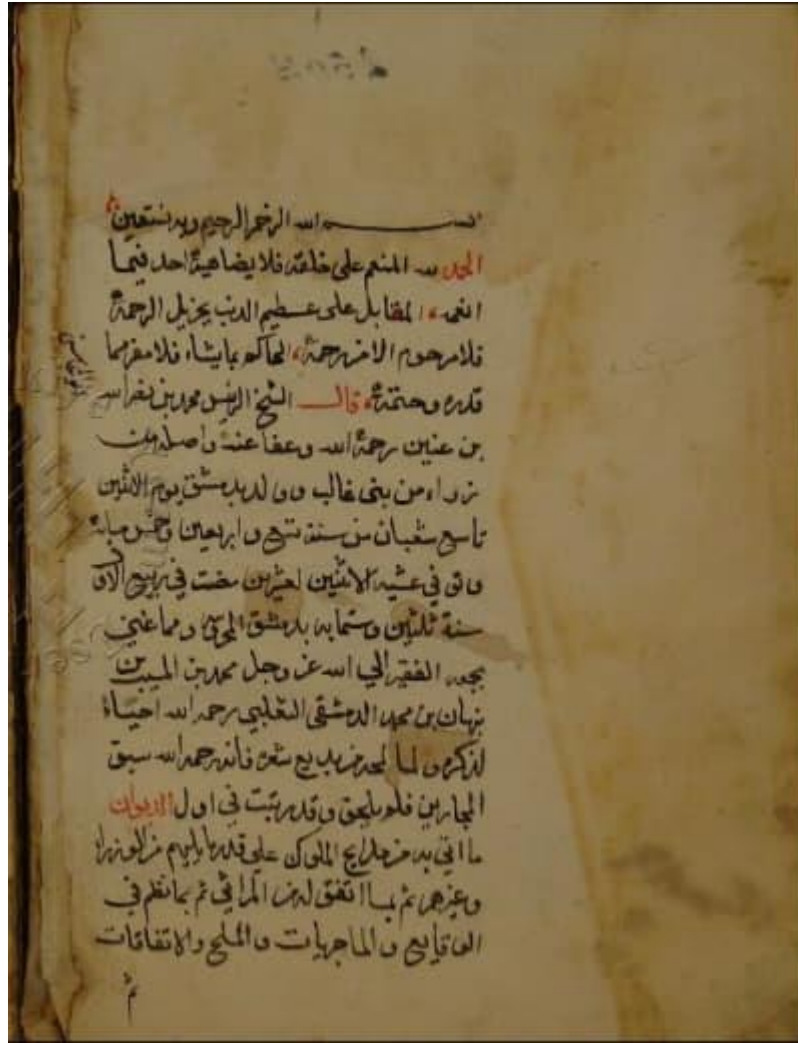 بسم الله الرحمن الرحيم وبه نستعين
الحمد لله المنعم على خلقه فلا يضاهيه احد فيما
انعمه المقابل على عظيم الذنب بجزيل الرحمة
فلا مرحوم الا من رحمه الحاكم بما يشاء فلا مفر مما
قدره وحتمه قال الشيخ الرئيس محمد بن نصر الله
بن عنين رحمه الله وعفا عنه واصله من
زراء من بني غالب وولد بدمشق يوم الاثنين
تاسع شعبان من سنة تسع واربعين وخمس مائة
وتوفي عشية الاثنين لعشرين مضت في ربيع الاول
سنة ثلثين وستمايه بدمشق المحروسه ومما عني
بجمعه الفقير الى الله عز وجل محمد بن المسيب بن
نبهان بن محمد الدمشقي التغلبي رحمه الله احياء
لذكره ولما لمحه من بديع شعره فانه رحمه الله سبق
المجارين فلم يلحق وقد رتبت في اول الديوان
ما اتى به من مدايح الملوك على قدرها يليهم من الوزراء
وغيرهم ثم بما اتفق له من المراثي ثم بما نظم في
الوقايع والماجريات والملح والاتفاقات
ثم